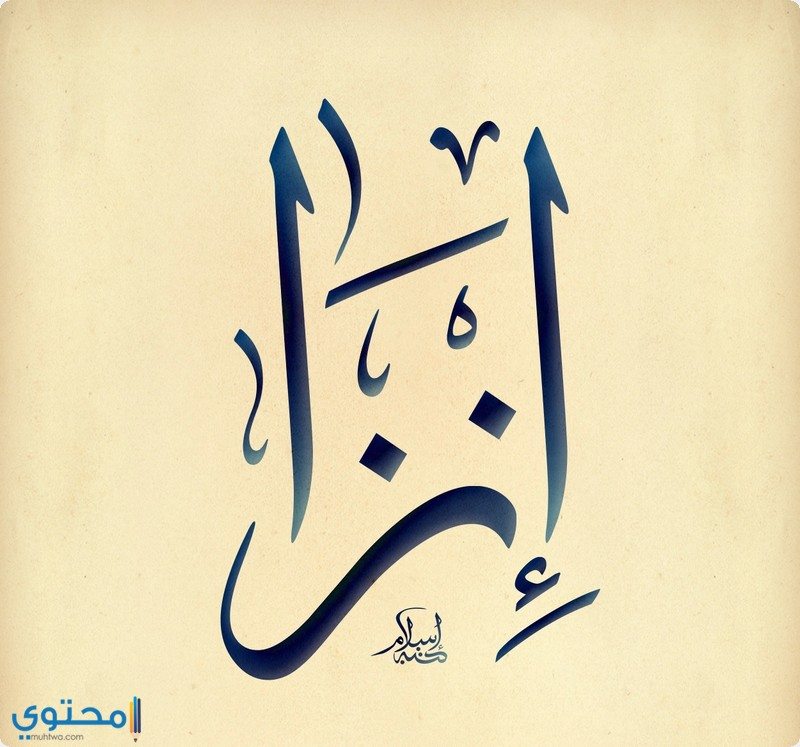 إنزا
إسلام
كتبه
محتوي
muhtwa.com